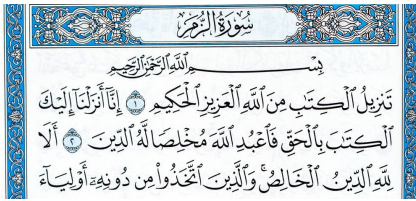 سُورَةُ الزُّمَرِ
بِسْمِ اللَّهِ الرَّحْمَٰنِ الرَّحِيمِ
تَنزِيلُ الْكِتَابِ مِنَ اللَّهِ الْعَزِيزِ الْحَكِيمِ ١ إِنَّا أَنزَلْنَا إِلَيْكَ
الْكِتَابَ بِالْحَقِّ فَاعْبُدِ اللَّهَ مُخْلِصًا لَّهُ الدِّينَ ٢ أَلَا
لِلَّهِ الدِّينُ الْخَالِصُ ۚ وَالَّذِينَ اتَّخَذُوا مِن دُونِهِ أَوْلِيَاءَ